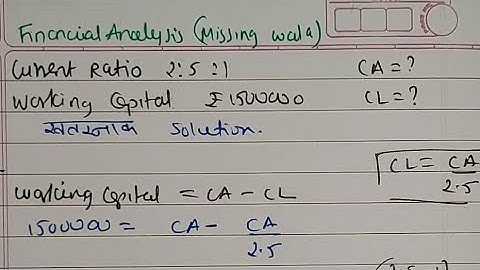 Financial Analysis (Missing wala)
Current Ratio 2.5:1 CA = ?
Working Capital ₹ 1500000 CL = ?
खतरनाक Solution.
CL = CA/2.5
Working Capital = CA - CL
1500000 = CA - CA/2.5